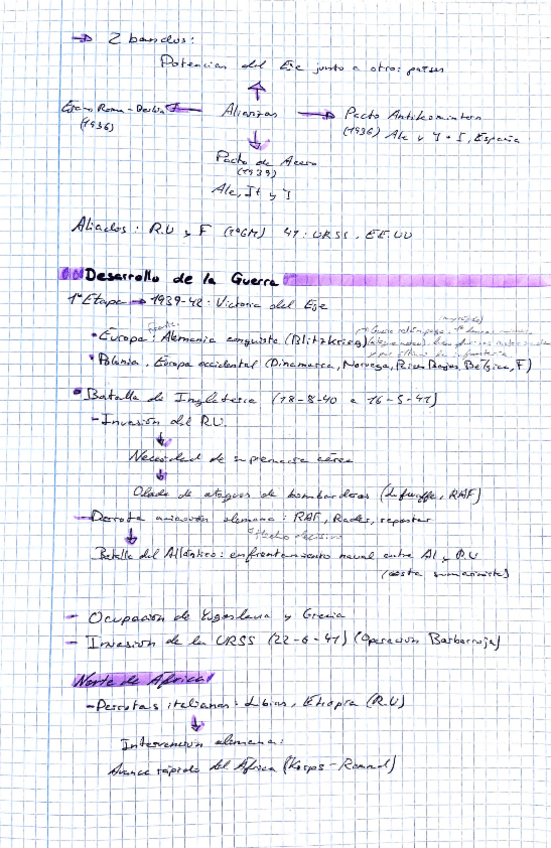 → 2 bandos:
Potencias del Eje junto a otros países
Eje Roma-Berlín ← Alianzas → Pacto Antikomintern
(1936) (1936) Ale y J + I, España
Pacto de Acero
(1939)
Ale, It y J
Aliados: R.U y F (1ªGM) 41: URSS, EE.UU
Desarrollo de la Guerra
1ª Etapa → 1939-42: Victoria del Eje
• Europa: Alemania conquista (Blitzkrieg)
• Polonia, Europa occidental (Dinamarca, Noruega, Países Bajos, Bélgica, F)
• Batalla de Inglaterra (18-8-40 a 16-5-41)
- Invasión del R.U.
Necesidad de supremacía aérea
Oleada de ataques de bombarderos (Luftwaffe, RAF)
- Derrota aviación alemana: RAF, Radar, repostar
Hecho decisivo
Batalla del Atlántico: enfrentamiento naval entre Al y R.U
(costa
- Ocupación de Yugoslavia y Grecia
- Invasión de la URSS (22-6-41) (Operación Barbarroja)
Norte de África
- Derrotas italianas: Libia, Etiopía (R.U)
Intervención alemana:
Avance rápido del África (Korps-Rommel)